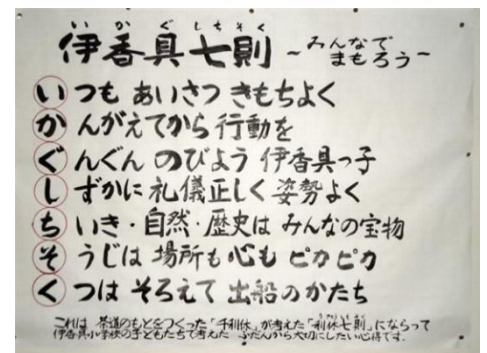 いかぐしちそく
伊香具七則 ～みんなで まもろう～
いつも あいさつ きもちよく
かんがえてから 行動を
ぐんぐん のびよう 伊香具っ子
しずかに 礼儀正しく 姿勢よく
ちいき・自然・歴史は みんなの宝物
そうじは 場所も 心も ピカピカ
くつは そろえて 出船のかたち
これは 茶道のもとをつくった「千利休」が考えた「利休七則」にならって
伊香具小学校の子どもたちで考えた ふだんから大切にしたい心得です。